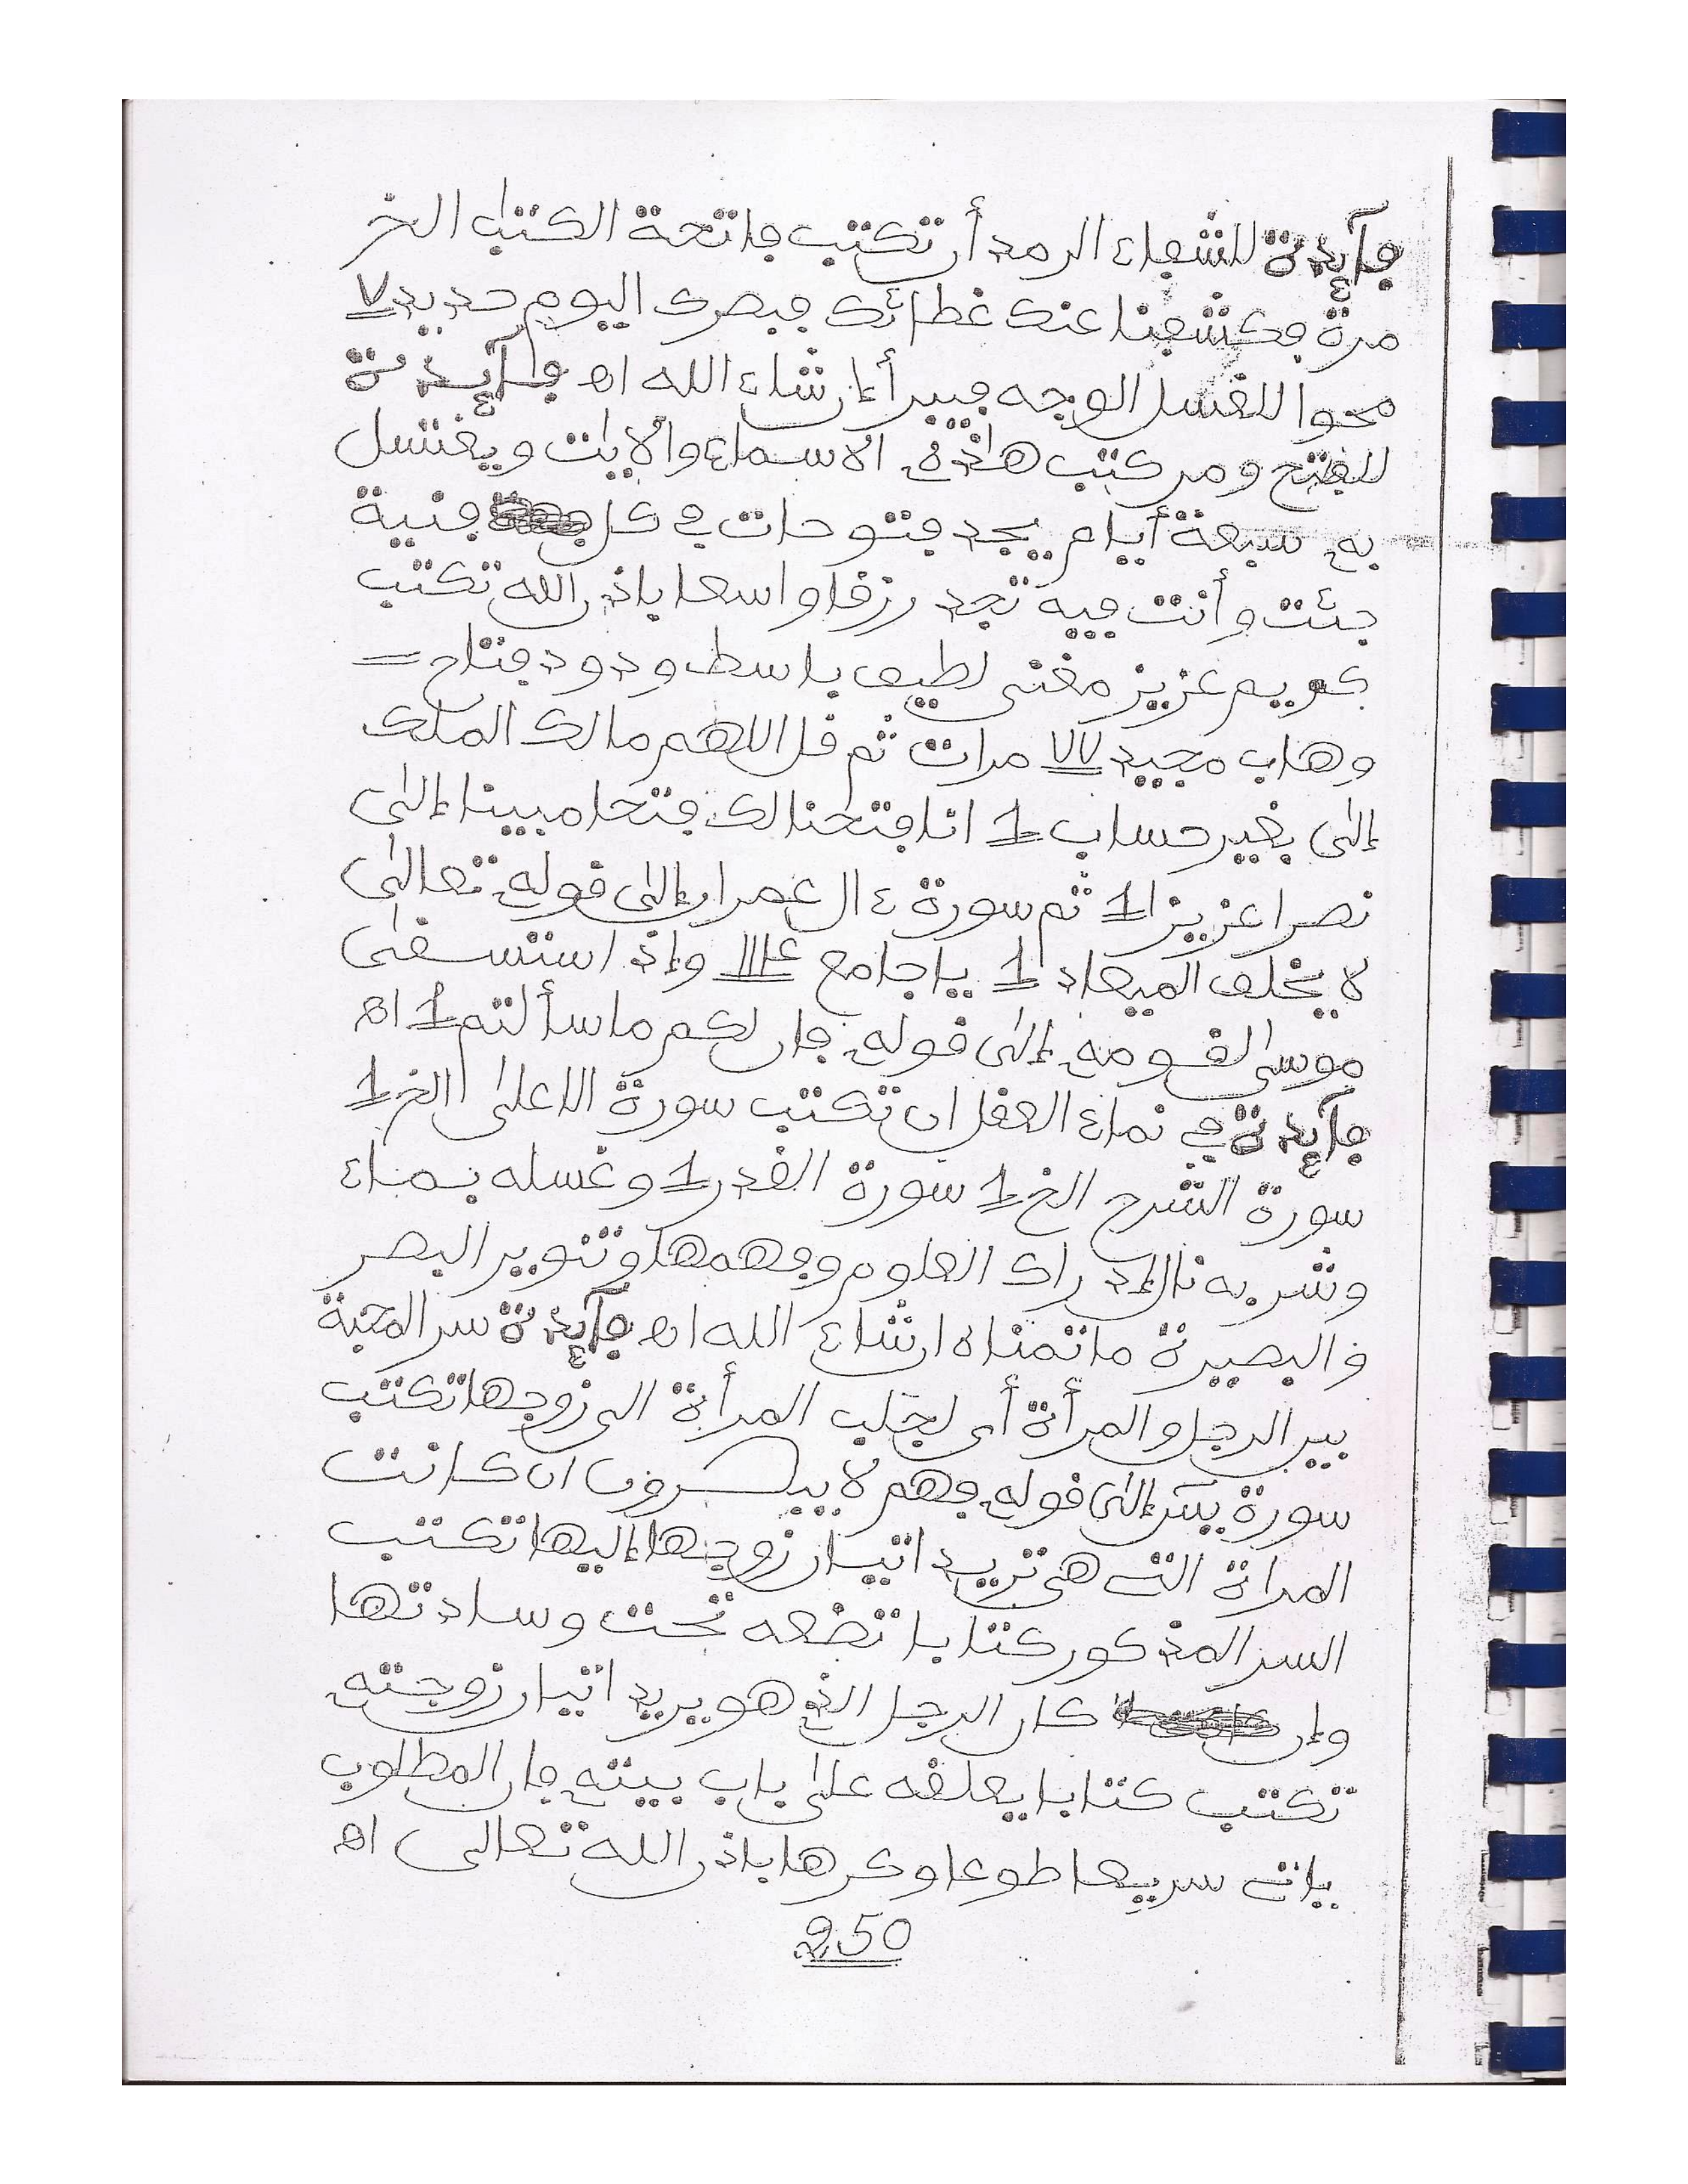 فآئدة للشفاء الرمد أن تكتب فاتحة الكتاب الخ
مرة فكشفنا عنك غطائك فبصرك اليوم حديد ٧
محوا للغسل الوجه فيبرأ إن شاء الله اه فآئدة
للفتح ومن كتب هاذه الاسماء والايات ويغتسل
به سبعة أيام يجد فتوحات في كل فنية
جئت وأنت فيه تجد رزقا واسعا باذن الله تكتب
كريم عزيز مغنى لطيف باسط ودود فتاح =
وهاب مجيد ٧٧ مرات ثم قل اللهم مالك الملك
إلى بغير حساب 1 انا فتحنا لك فتحا مبينا إلى
نصرا عزيزا 1 ثم سورة ءال عمران إلى قوله تعالى
لا يخلف الميعاد 1 يا جامع واذ استسقى
موسى لقومه إلى قوله فان لكم ما سألتم 1 اه
فآئدة في نماء العقل ان تكتب سورة الاعلى الخ 1
سورة الشرح الخ 1 سورة القدر 1 وغسله بماء
وشربه نال إدراك العلوم وفهمها وتنوير البصر
والبصيرة ما تمناه ان شاء الله اه فآئدة سر المحبة
بين الرجل والمرأة أى لجلب المرأة الى زوجها تكتب
سورة يس إلى قوله فهم لا يبصرون ان كانت
المراة التى هى تريد اتيان زوجها إليها تكتب
السر المذكور كتابا تضعه تحت وسادتها
وإن كان الرجل الذى هو يريد اتيان زوجته
تكتب كتابا يعلقه على باب بيته فان المطلوب
ياتى سريعا طوعا وكرها باذن الله تعالى اه
250